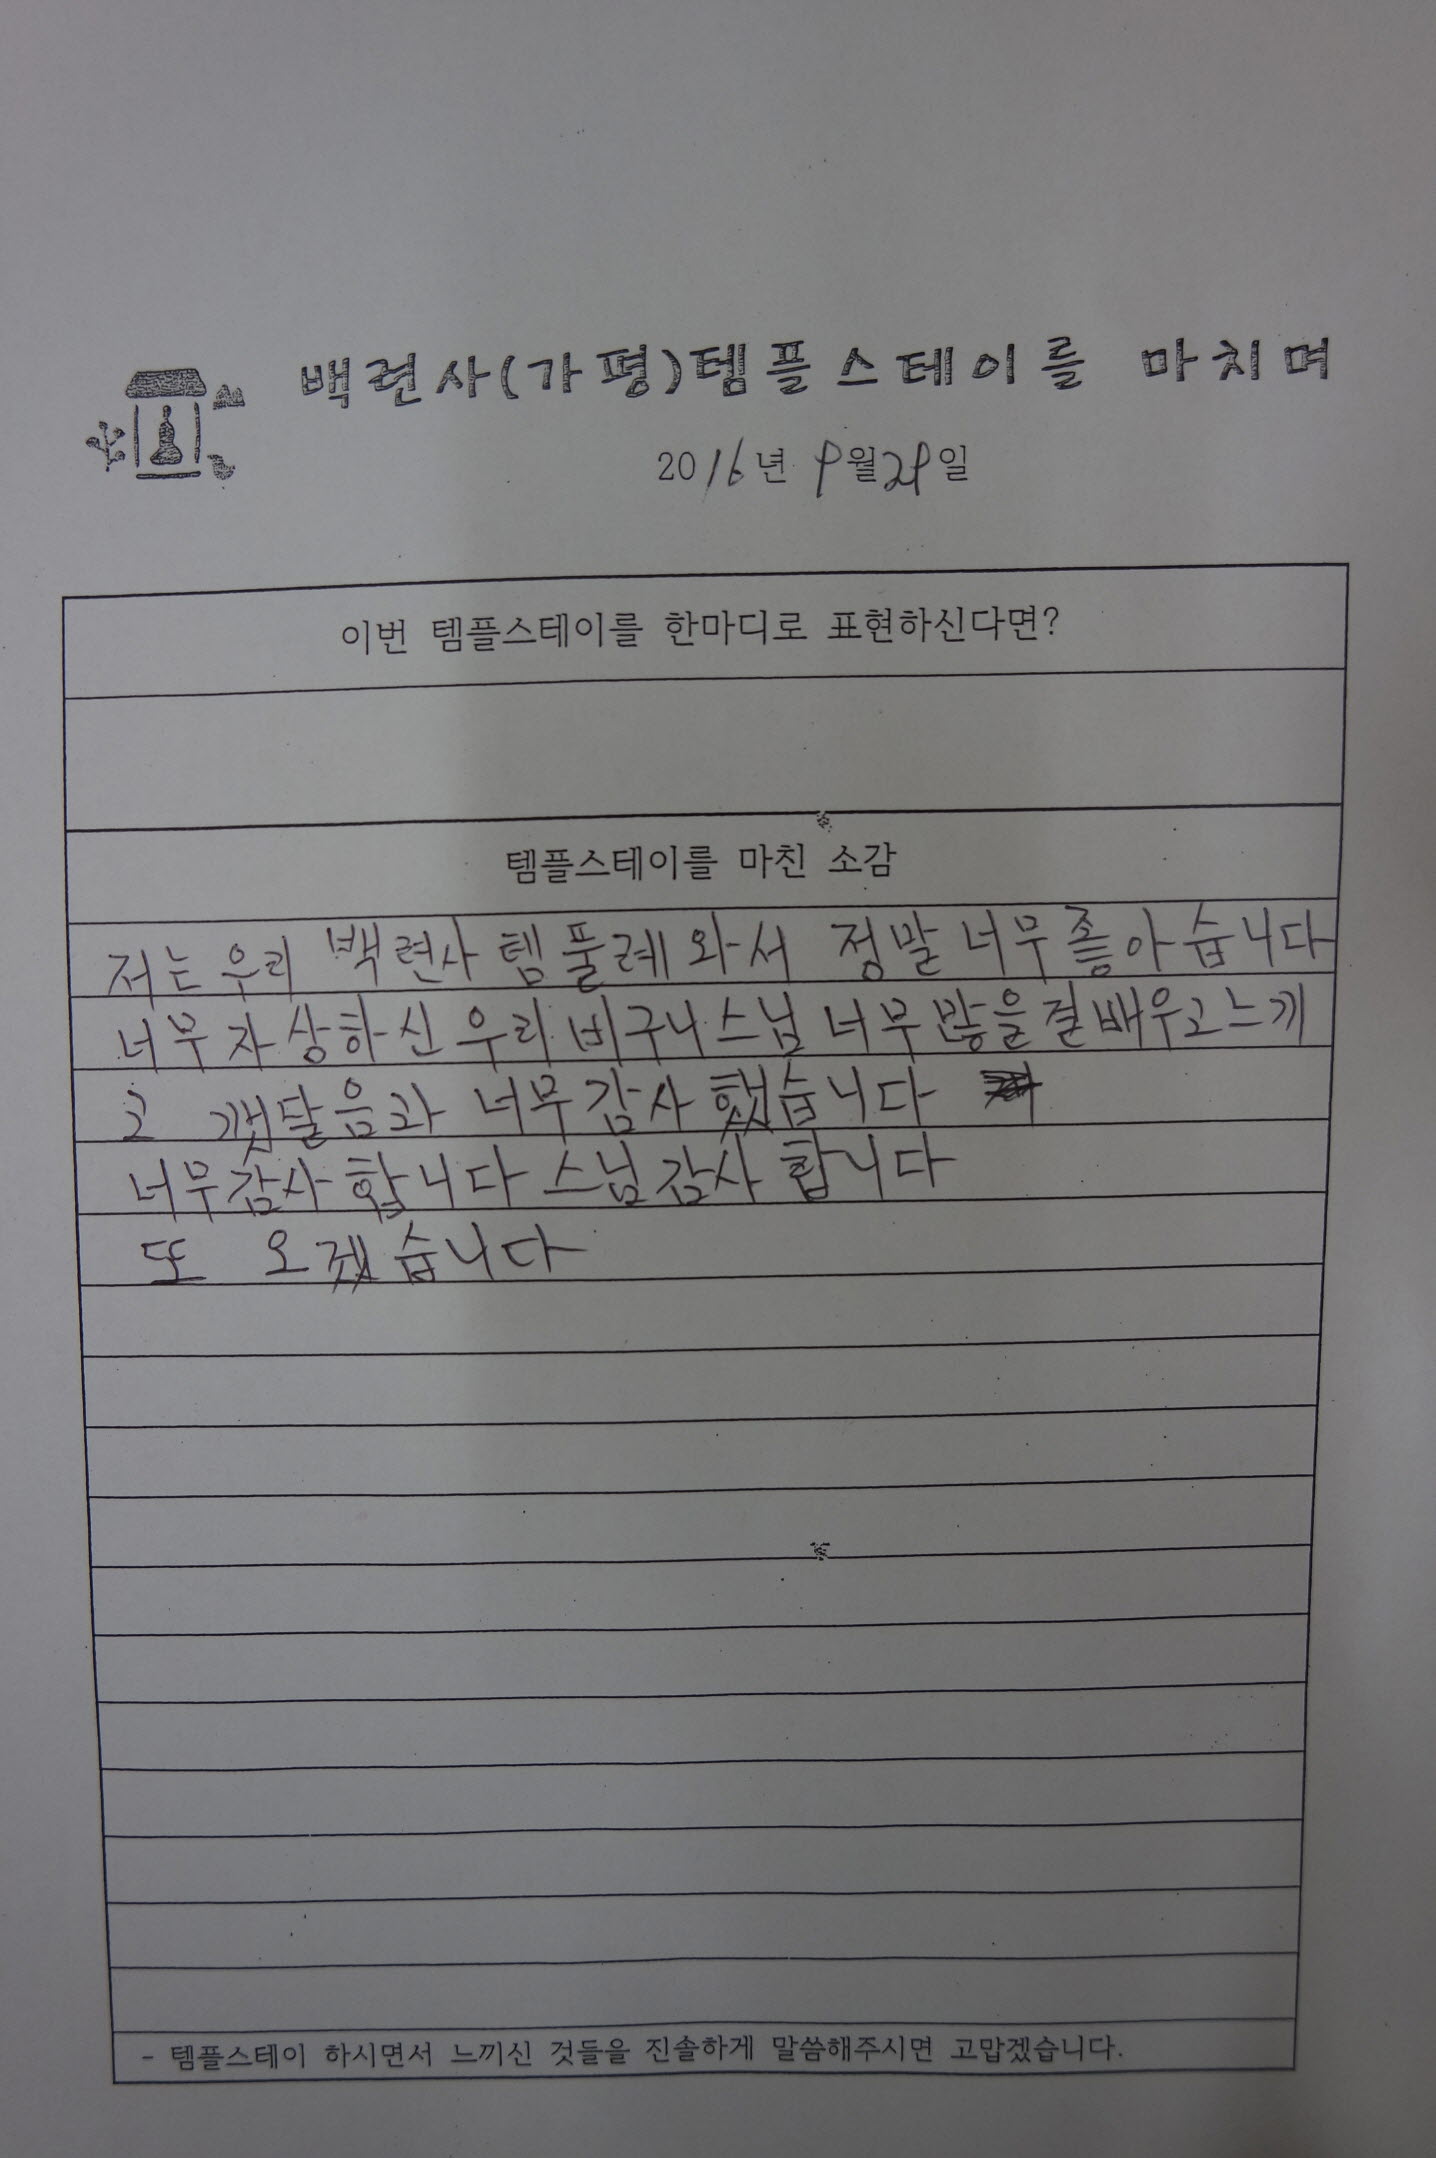 백련사(가평)템플스테이를 마치며
2016년 9월29일
이번 템플스테이를 한마디로 표현하신다면?
템플스테이를 마친 소감
저는 우리 백련사 템풀레 와서 정말 너무좋아습니다
너무자상하신 우리 비구니스님 너무많을걸배우고느끼
고 깼달음과 너무감사했습니다
너무감사합니다 스님감사합니다
또 오겠습니다
- 템플스테이 하시면서 느끼신 것들을 진솔하게 말씀해주시면 고맙겠습니다.